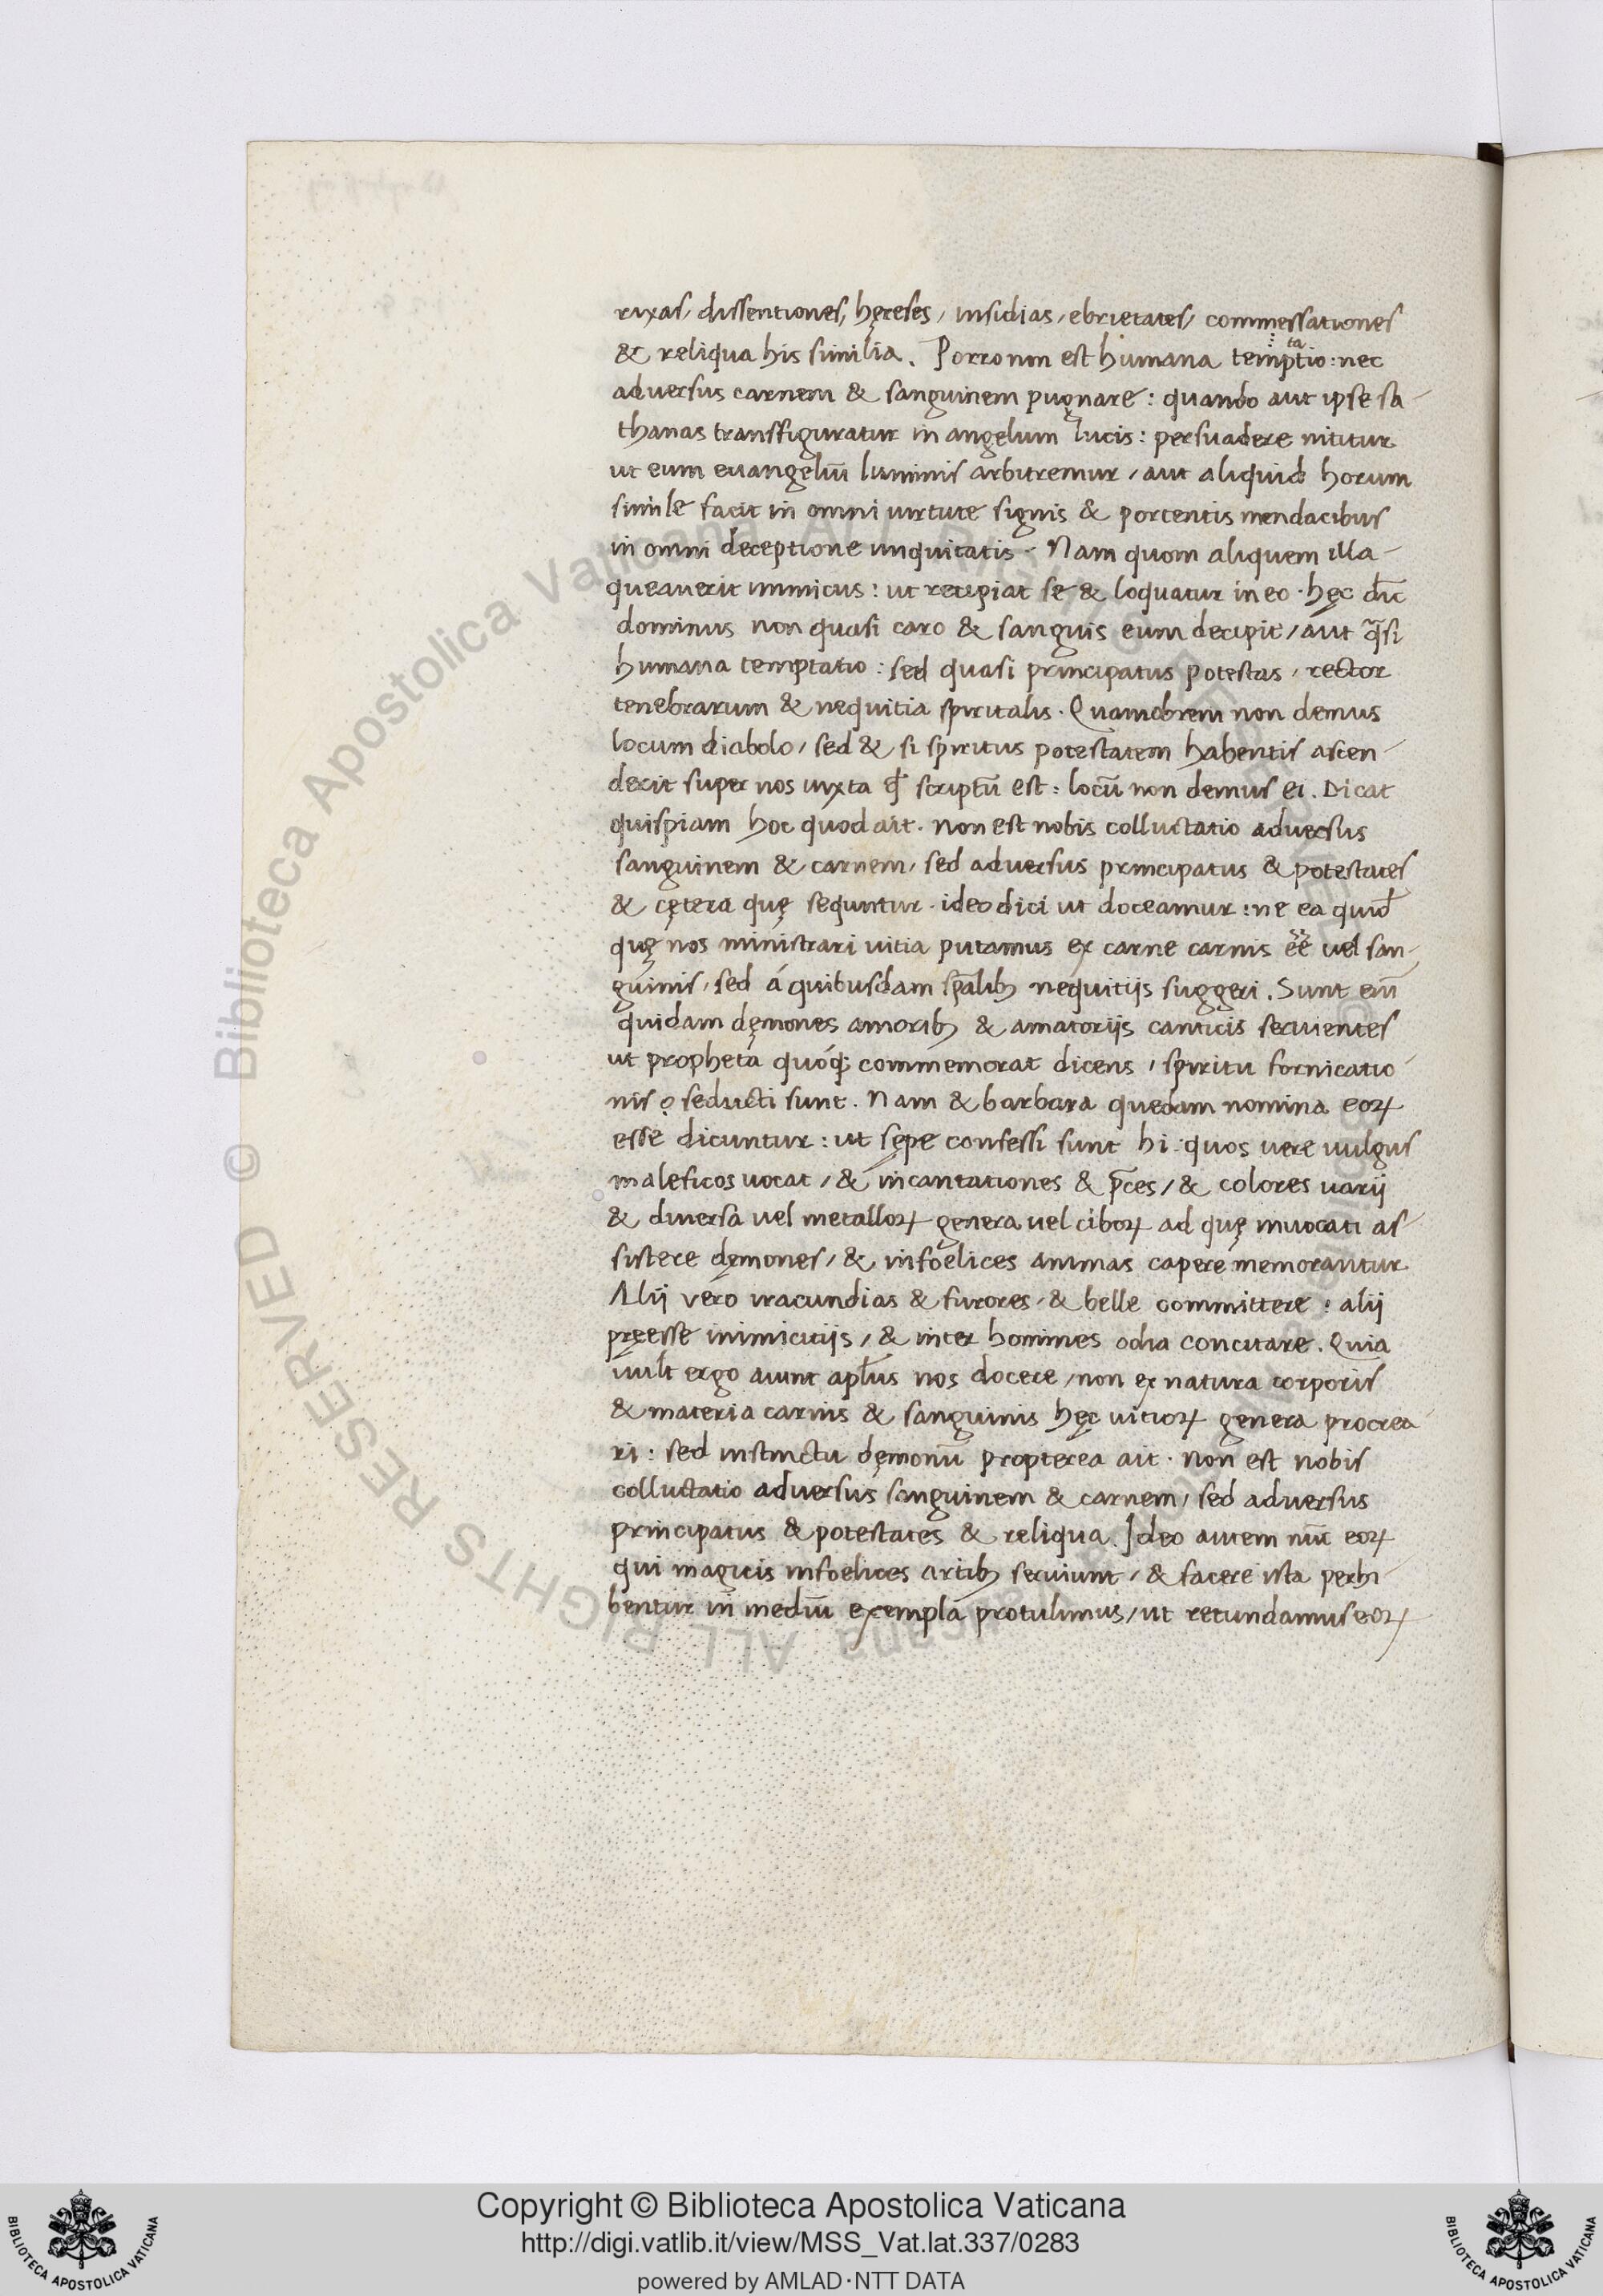 rixas, dissentiones, hęreses, insidias, ebrietates, commessationes
& reliqua his similia. Porro non est humana temptatio: nec
adversus carnem & sanguinem pugnare: quando aut ipse sa-
thanas transfiguratur in angelum lucis: persuadere nititur
ut eum euangeliū luminis arbitremur, aut aliquid horum
simile facit in omni uirtute signis & portentis mendacibus
in omni deceptione iniquitatis. Nam quom aliquem illa-
queauerit inimicus: ut recipiat se & loquatur in eo. hęc dīc
dominus non quasi caro & sanguis eum decipit, aut q̄si
humana temptatio: sed quasi principatus potestas, rector
tenebrarum & nequitia spiritalis. Quamobrem non demus
locum diabolo, sed & si spiritus potestatem habentis ascen-
derit super nos iuxta qđ scriptū est: locū non demus ei. Dicat
quispiam hoc quod ait. non est nobis colluctatio adversus
sanguinem & carnem, sed adversus principatus & potestates
& cętera quę sequntur. ideo dici ut doceamur: ne ea quid̄
quę nos ministrari uitia putamus ex carne carnis ēē uel san-
guinis, sed á quibusdam sp̄alibꝫ nequitijs suggeri. Sunt eni̅
quidam dęmones amoribꝫ & amatorijs canticis seruientes
ut propheta quóqꝫ commemorat dicens, spiritu fornicatio-
nis seducti sunt. Nam & barbara quedam nomina eoꝝ
esse dicuntur: ut sępe confessi sunt hi. quos uere uulgus
maleficos uocat, & incantationes & p̄ces, & colores uarij
& diuersa uel metalloꝝ genera uel ciboꝝ ad quę inuocati as-
sistere dęmones, & infoelices animas capere memorantur
Alij vero iracundias & furores, & belle committere: alij
pręesse inimicitijs, & inter homines odia concitare. Quia
uult ergo aiunt apl̄us nos docere, non ex natura corporis
& materia carnis & sanguinis hęc uitioꝝ genera procrea-
ri: sed instinctu dęmonū propterea ait. non est nobis
colluctatio adversus sanguinem & carnem, sed adversus
principatus & potestates & reliqua. Ideo autem nūc eoꝝ
qui magicis infoelices artibꝫ seruiunt, & facere ista perhi-
bentur in mediū exempla protulimus, ut retundamus eoꝝ
© Biblioteca Apostolica Vaticana ALL RIGHTS RESERVED
Copyright © Biblioteca Apostolica Vaticana
http://digi.vatlib.it/view/MSS_Vat.lat.337/0283
powered by AMLAD·NTT DATA
BIBLIOTECA APOSTOLICA VATICANA
BIBLIOTECA APOSTOLICA VATICANA